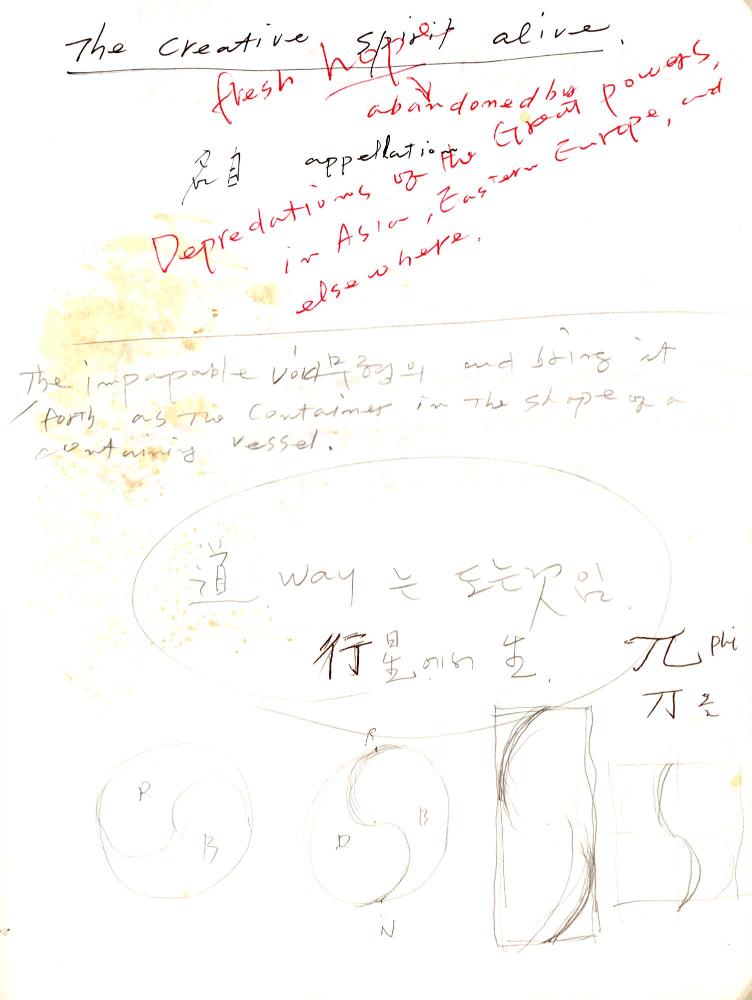 The creative spirit alive.
fresh hope
abandoned by
名目 appellation
Depredations of the Great powers,
in Asia, Eastern Europe, and
elsewhere.
The impapable void 무형의 and bring it
forth as the container in the shape of a
containing vessel.
道 way 는 도는것임.
行星에서 生.
兀 phi
丌 를
R
B
R
B
D
N